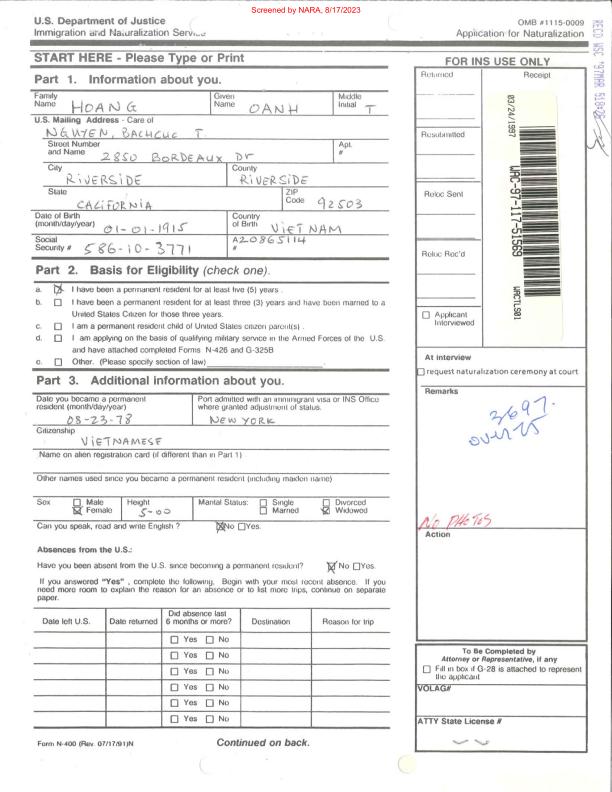 Screened by NARA, 8/17/2023
U.S. Department of Justice
Immigration and Naturalization Service
OMB #1115-0009
Application for Naturalization
RECD WSC '97MAR 5
START HERE - Please Type or Print
Part 1. Information about you.
Family Name HOANG
Given Name OANH
Middle Initial T
U.S. Mailing Address - Care of
NGUYEN, T.
Street Number and Name 2850 BORDEAUX Dr
Apt. #
City RIVERSIDE
County RIVERSIDE
State CALIFORNIA
ZIP Code 92503
Date of Birth (month/day/year) 01-01-1915
Country of Birth VIETNAM
Social Security # 586-10-3771
A20865114
#
Part 2. Basis for Eligibility (check one).
a. I have been a permanent resident for at least five (5) years .
b. I have been a permanent resident for at least three (3) years and have been married to a
United States Citizen for those three years.
c. I am a permanent resident child of United States citizen parent(s) .
d. I am applying on the basis of qualifying military service in the Armed Forces of the U.S.
and have attached completed Forms N-426 and G-325B
e. Other. (Please specify section of law)
Part 3. Additional information about you.
Date you became a permanent resident (month/day/year)
08-23-78
Port admitted with an immigrant visa or INS Office
where granted adjustment of status.
NEW YORK
Citizenship
VIETNAMESE
Name on alien registration card (if different than in Part 1)
Other names used since you became a permanent resident (including maiden name)
Sex Male Female
Height 5-00
Marital Status: Single Married Divorced Widowed
Can you speak, read and write English ? No Yes.
Absences from the U.S.:
Have you been absent from the U.S. since becoming a permanent resident? No Yes.
If you answered "Yes" , complete the following. Begin with your most recent absence. If you
need more room to explain the reason for an absence or to list more trips, continue on separate
paper.
Date left U.S. Date returned Did absence last 6 months or more? Destination Reason for trip
Yes No
Yes No
Yes No
Yes No
Yes No
Yes No
Form N-400 (Rev. 07/17/91)N
Continued on back.
FOR INS USE ONLY
Returned
Receipt
Resubmitted
Reloc Sent
Reloc Rec'd
03/24/1997
WAC-97-117-51569
WRCTLS01
Applicant Interviewed
At interview
request naturalization ceremony at court
Remarks
3697.
over 75
NO PHOTOS
Action
To Be Completed by
Attorney or Representative, if any
Fill in box if G-28 is attached to represent
the applicant
VOLAG#
ATTY State License #